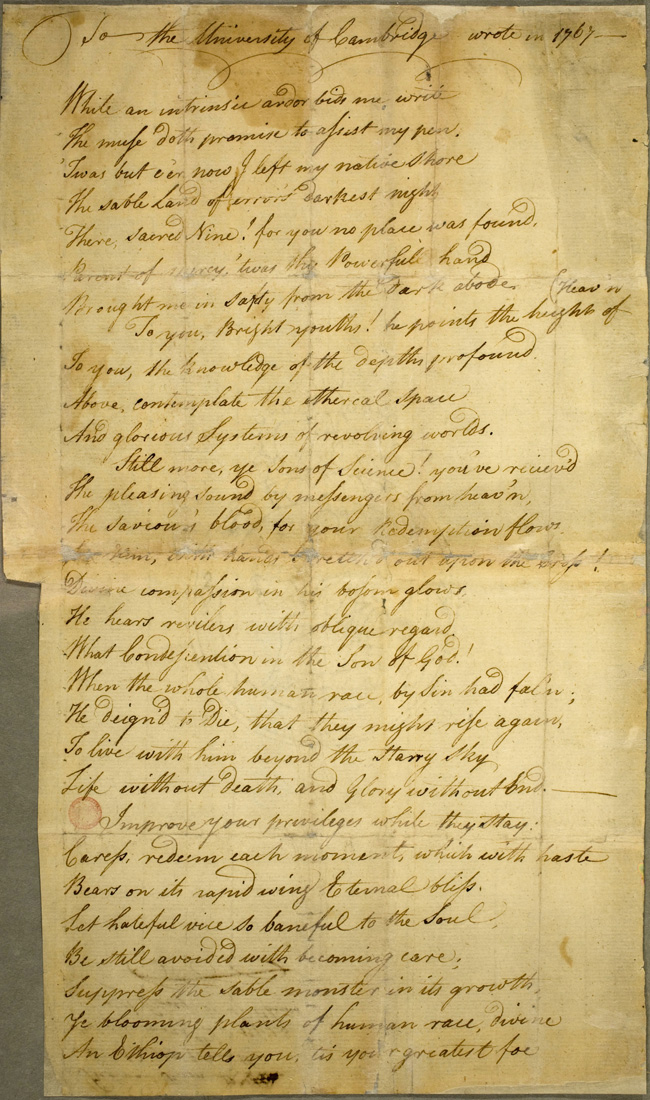 To the University of Cambridge wrote in 1767—
While an intrinsic ardor bids me write
The muse doth promise to assist my pen.
'Twas but e'er now I left my native Shore
The sable Land of error's darkest night
There, sacred Nine! for you no place was found,
Parent of mercy, 'twas thy Powerfull hand
Brought me in safty from the dark abode.
To you, Bright youths! he points the height of (Heav'n
To you, the knowledge of the depths profound.
Above, contemplate the ethereal Space
And glorious Systems of revolving worlds.
Still more, ye Sons of Science! you've reciev'd
The pleasing Sound by messengers from heav'n,
The Saviour's blood, for your Redemption flows.
him, with hands Stretch'd out upon the Cross!
Divine compassion in his bosom glows.
He hears revilers with oblique regard.
What Condescention in the Son of God!
When the whole human race, by Sin had fal'n;
He deign'd to Die, that they might rise again,
To live with him beyond the Starry Sky
Life without death, and Glory without End.—
Improve your privileges while they Stay:
Caress, redeem each moment, which with haste
Bears on its rapid wing Eternal bliss.
Let hateful vice so baneful to the Soul,
Be still avoided with becoming care;
Suppress the sable monster in its growth,
Ye blooming plants of human race, divine
An Ethiop tells you, tis your greatest foe